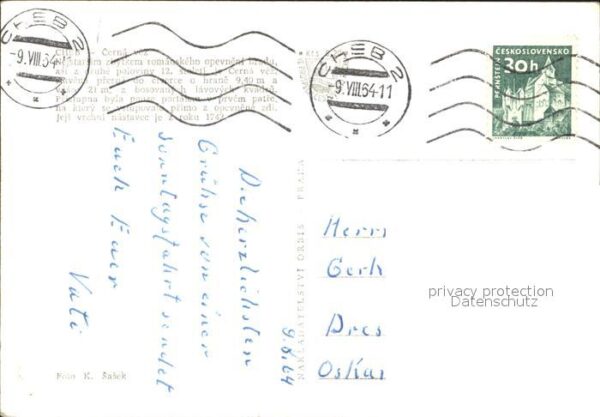 CHEB 2
-9.VIII.64-11
CHEB 2
-9.VIII.64-11
ČESKOSLOVENSKO
30h
PERNŠTEJN
CHEB — Černá věž
zbytkem románského opevnění hradu,
asi z druhé poloviny 12. Černá věž
21 m, z bosovaných lávových kvádrů.
Přístupna byla portálem v prvém patře,
na který se vstupovalo přímo z opevněné zdi.
Její vrchní nástavec je z roku 174
Die herzlichsten
Grüße von einer
Sonntagsfahrt sendet
Euch Euer
Vati
9.8.64
NAKLADATELSTVÍ ORBIS - PRAHA
Herrn
Gerh
Dres
Oskar
privacy protection
Datenschutz
Foto K. Šašek